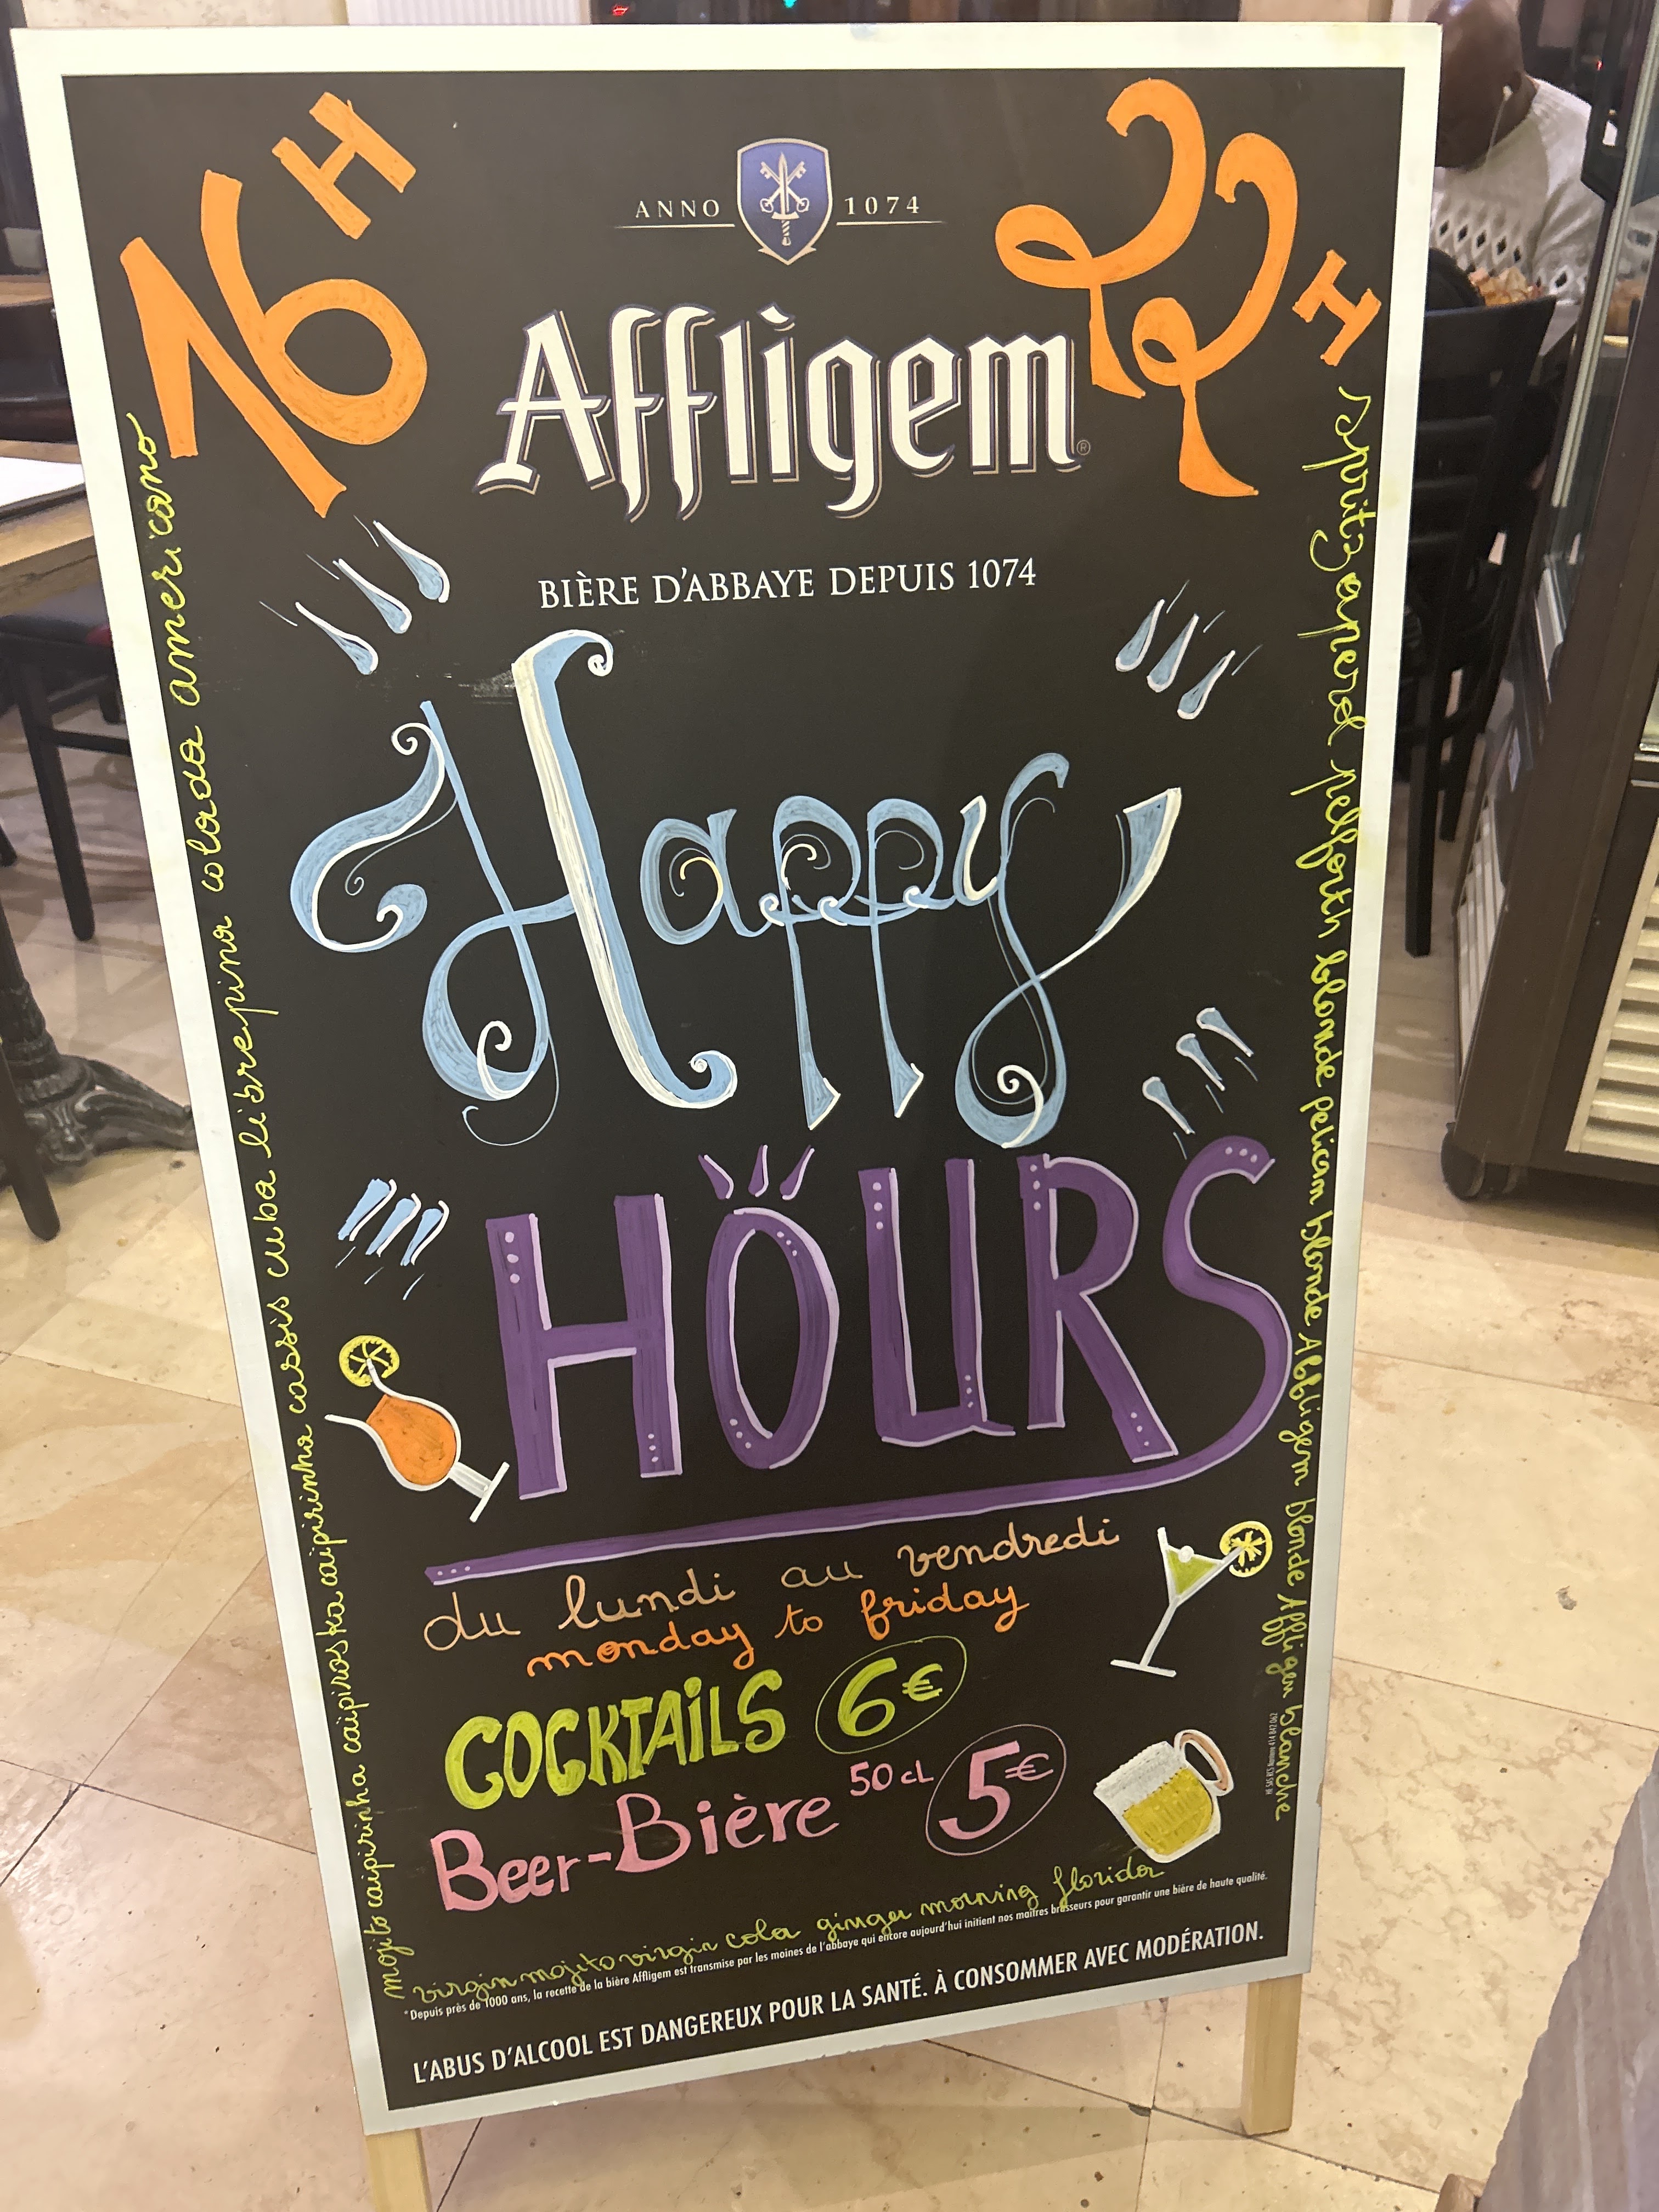 16H
22H
ANNO 1074
Affligem®
BIÈRE D'ABBAYE DEPUIS 1074
Happy
HOURS
du lundi au vendredi
monday to friday
COCKTAILS 6€
Beer-Bière 50 cL 5€
mojito caipirinha caipiroska caipirinha cassis cuba libre pina colada americano
spritz aperol pelforth blonde pelican blonde Affligem blonde Affligem blanche
virgin mojito virgin cola ginger morning florida
*Depuis près de 1000 ans, la recette de la bière Affligem est transmise par les moines de l'abbaye qui encore aujourd'hui initient nos maîtres brasseurs pour garantir une bière de haute qualité.
L'ABUS D'ALCOOL EST DANGEREUX POUR LA SANTÉ. À CONSOMMER AVEC MODÉRATION.